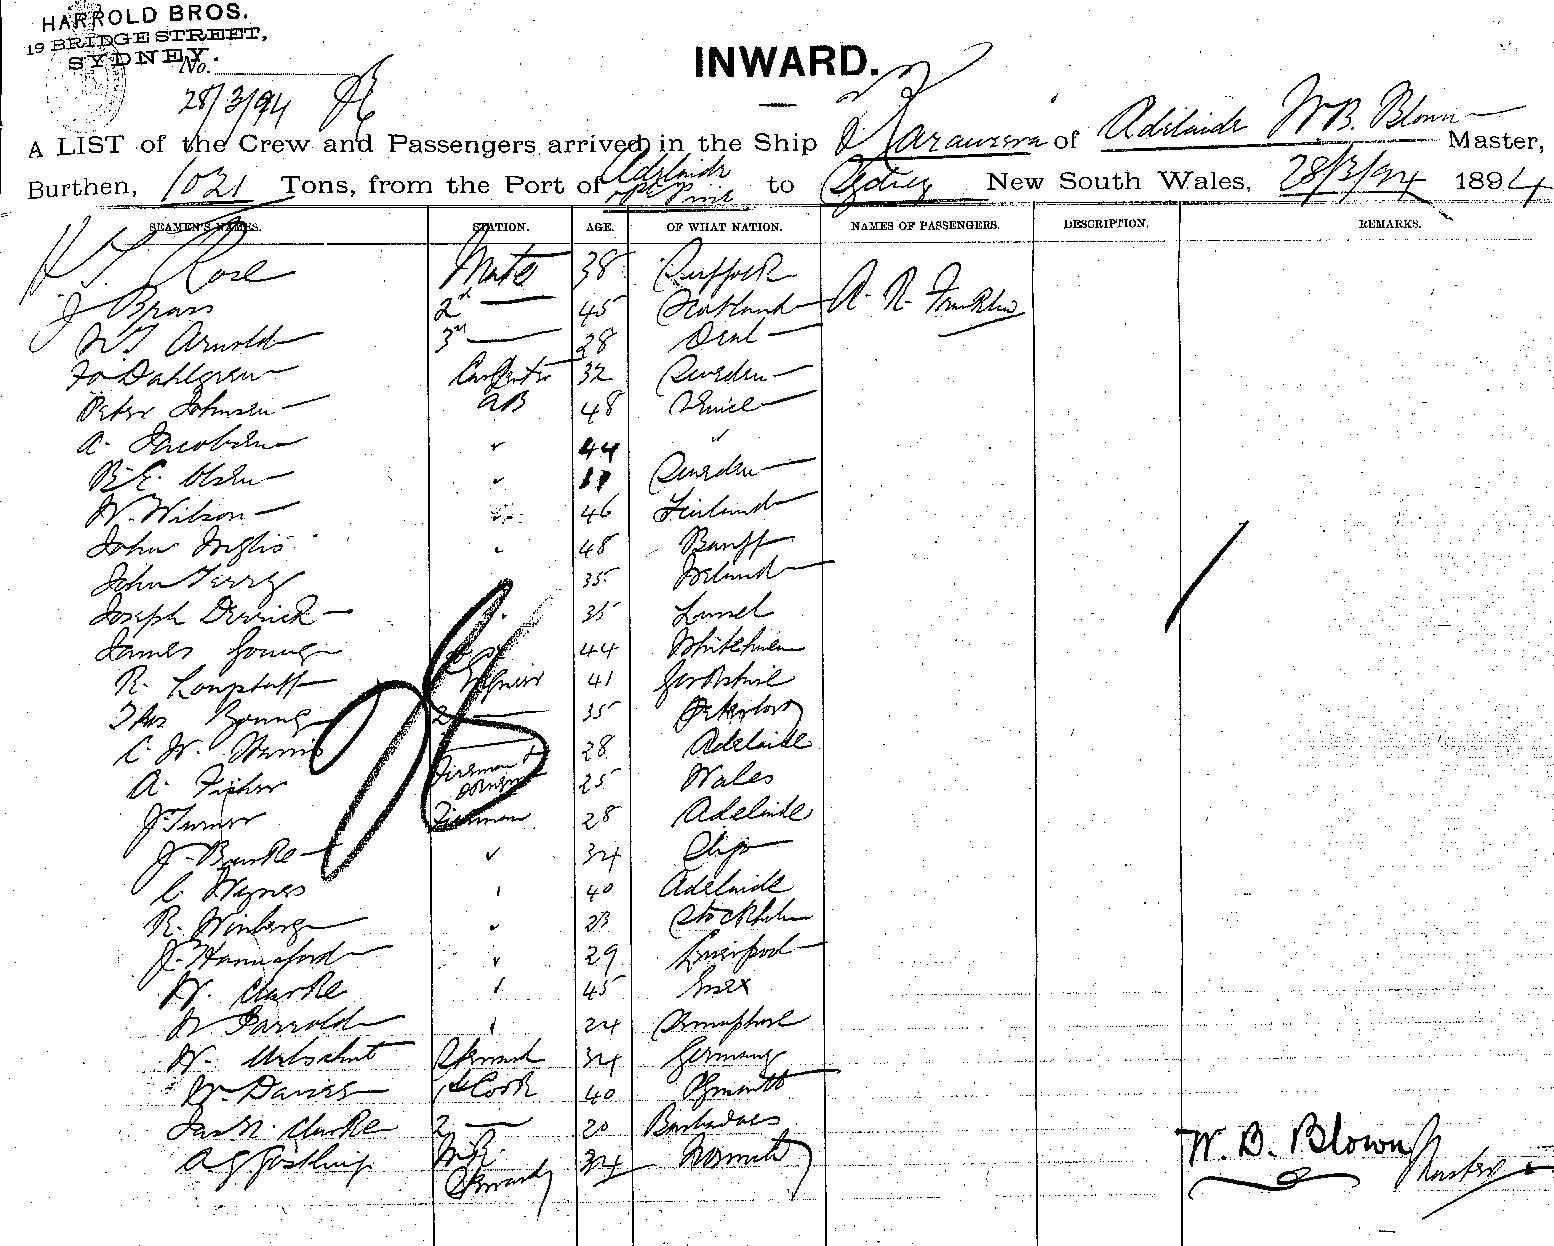 HARROLD BROS.
19 BRIDGE STREET,
SYDNEY.
No.
28/3/94
INWARD.
A LIST of the Crew and Passengers arrived in the Ship Tarawera of Adelaide W.B. Blown Master,
Burthen, 1021 Tons, from the Port of Adelaide to Sydney New South Wales, 28/3/94 1894
SEAMEN'S NAMES. STATION. AGE. OF WHAT NATION. NAMES OF PASSENGERS. DESCRIPTION. REMARKS.
Rose Mate 38 Suffolk
J Brass 2nd — 45 Scotland A. R. Franklin
Arnold 3rd — 28 Deal
Dahlgren Carpenter 32 Sweden
Peter Johnsen AB 48 Venice
A. Jacobsen " 44 "
Olsen " Sweden
W. Wilson " 46 Finland
John Inglis " 48 Banff
John Terry 35 Ireland
Joseph Derrick " 35
James Young 44 Whitehaven
R. Longstaff 41 Yorkshire
Thos Young 2 — 35
C. W. Harris — 28 Adelaide
A. Fisher Fireman & 25 Wales
J Turner Fireman 28 Adelaide
J. Burke " 34
C Waynes " 40 Adelaide
R. Winberg " 23 Stockholm
J. Hannaford " 29 Liverpool
W. Clarke " 45 Essex
Farrold " 24
W. Steward 34 Germany
W. Davies Cook 40 Plymouth
Jas N. Clarke 2 — 20 Barbadoes
A G Gostling 34
Steward
W. B. Blown Master